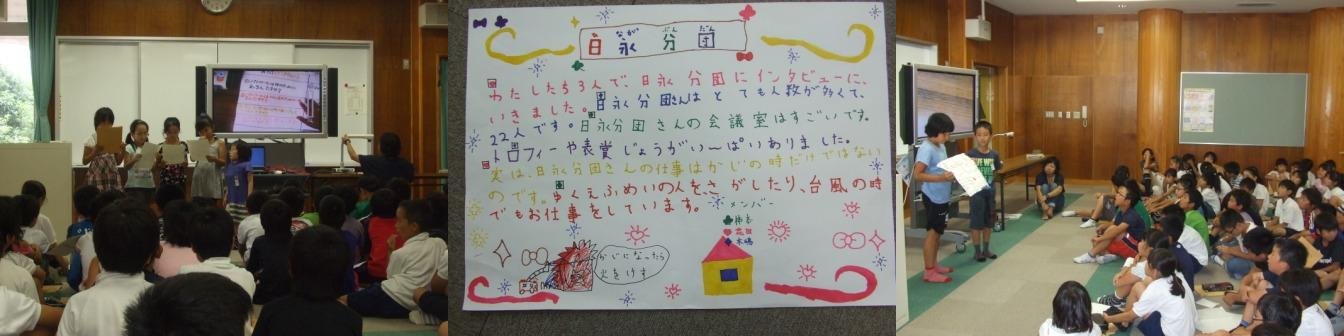 日永分団
なが ぶん だん
わたしたち3人で、日永分団にインタビューに、
いきました。日永分団さんはとても人数が多くて、
22人です。日永分団さんの会議室はすごいです。
トロフィーや表賞じょうがい〜ぱいありました。
実は、日永分団さんの仕事はかじの時だけではない
のです。ゆくえふめいの人をさがしたり、台風の時
でもお仕事をしています。
メンバー
かじになったら
火をけす